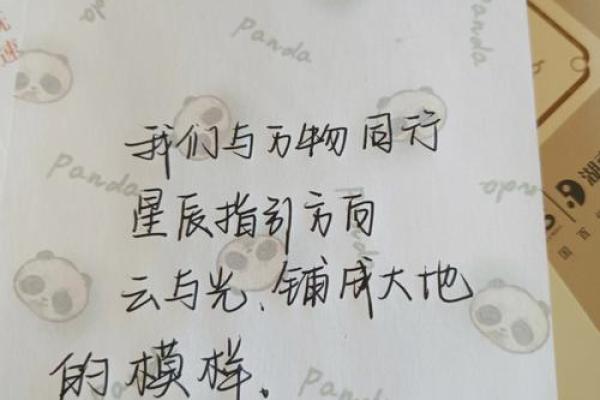 Panda
Panda
我们与万物同行
Panda
星辰指引方向
云与光、铺成大地
的模样、
Panda
Panda
速
国